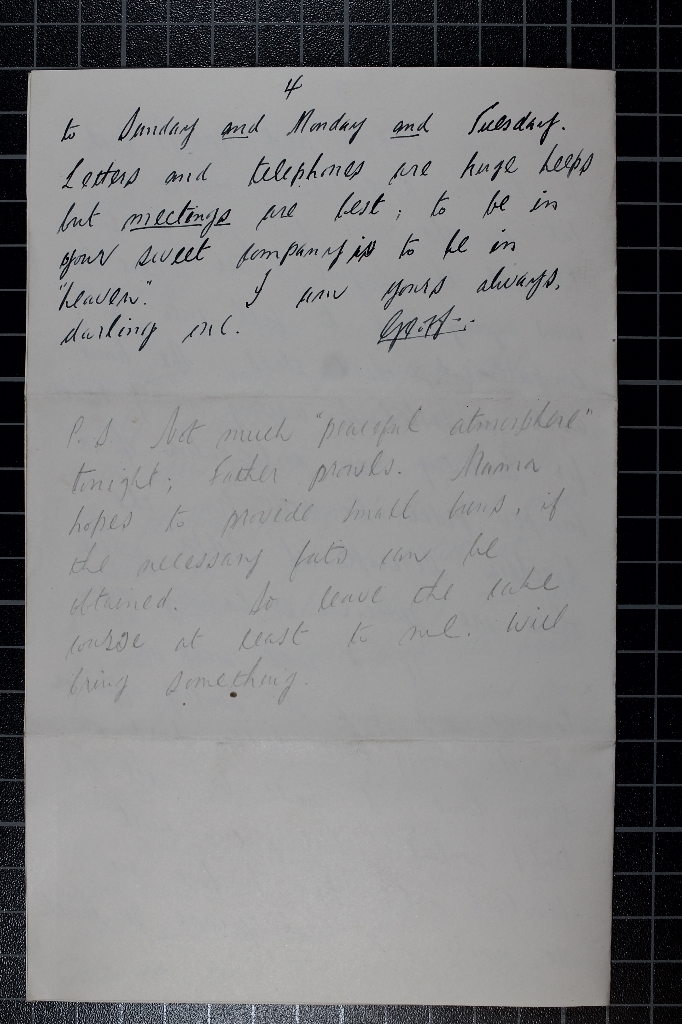 4
to Sunday and Monday and Tuesday.
Letters and telephones are huge helps
but meetings are best; to be in
your sweet company is to be in
"heaven". I am yours always,
darling ml. Geoff.
P.S. Not much "peaceful atmosphere"
tonight; Father prowls. Mama
hopes to provide small buns, if
the necessary fats can be
obtained. So leave the cake
course at least to me. Will
bring something.